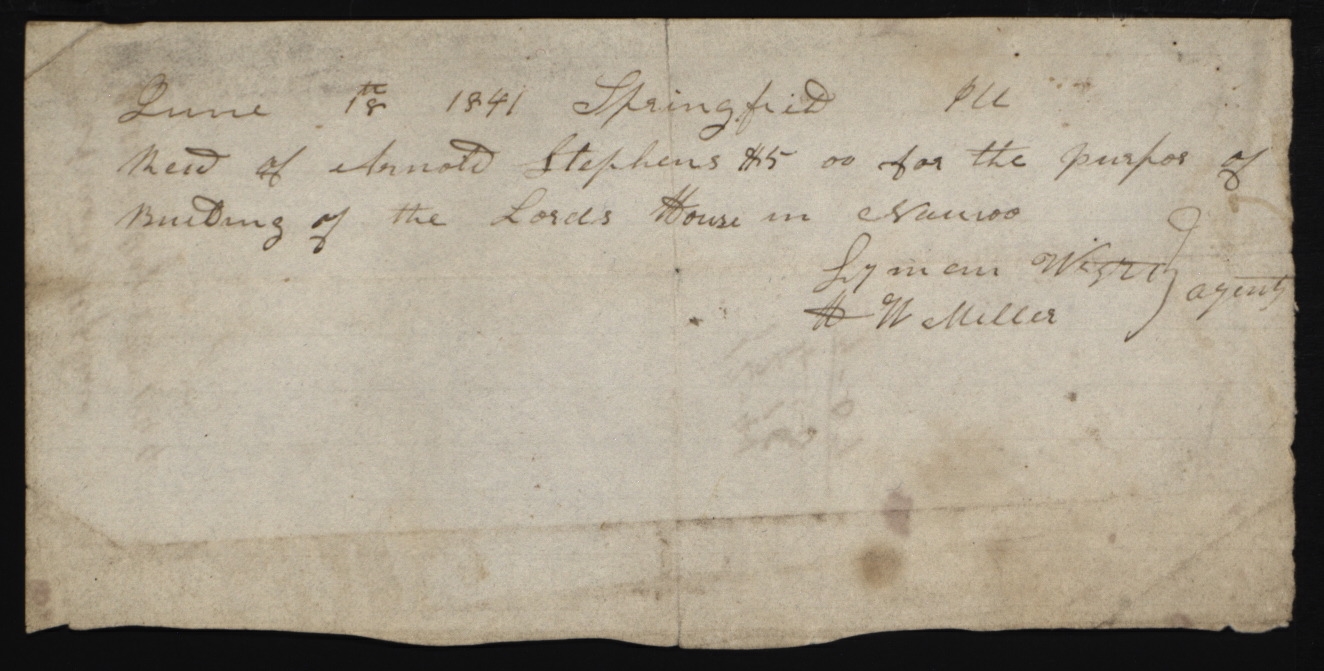 June 18th 1841 Springfield Ill
Recd of Arnold Stephens $5 00 for the purpos of
Building of the Lords House in Nauvoo
Lyman Wight
H W Miller
agents